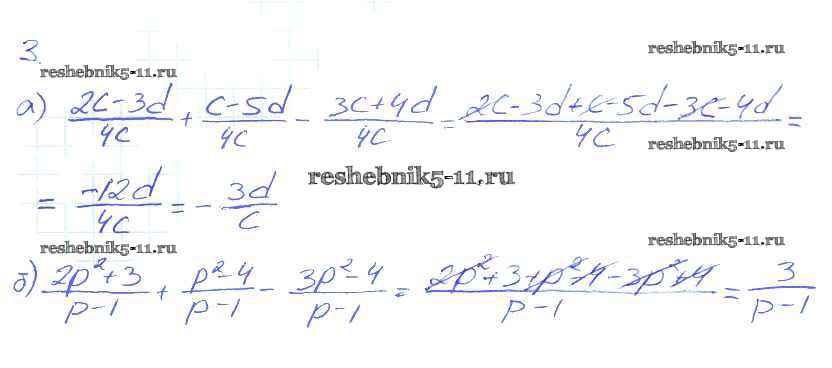 3.
reshebnik5-11.ru reshebnik5-11.ru
а) (2c-3d)/4c + (c-5d)/4c - (3c+4d)/4c = (2c-3d+c-5d-3c-4d)/4c =
reshebnik5-11.ru
= -12d/4c = - 3d/c reshebnik5-11.ru
reshebnik5-11.ru reshebnik5-11.ru
б) (2p²+3)/(p-1) + (p²-4)/(p-1) - (3p²-4)/(p-1) = (2p²+3+p²-4-3p²+4)/(p-1) = 3/(p-1)